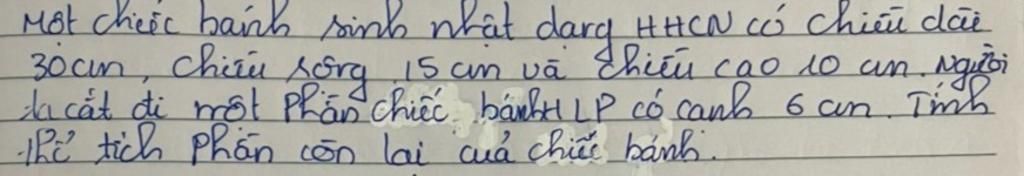 Một chiếc bánh sinh nhật dạng HHCN có chiều dài
30cm, chiều rộng 15 cm và chiều cao 10 cm. Người
ta cắt đi một phần chiếc bánh HLP có cạnh 6 cm. Tính
thể tích phần còn lại của chiếc bánh.